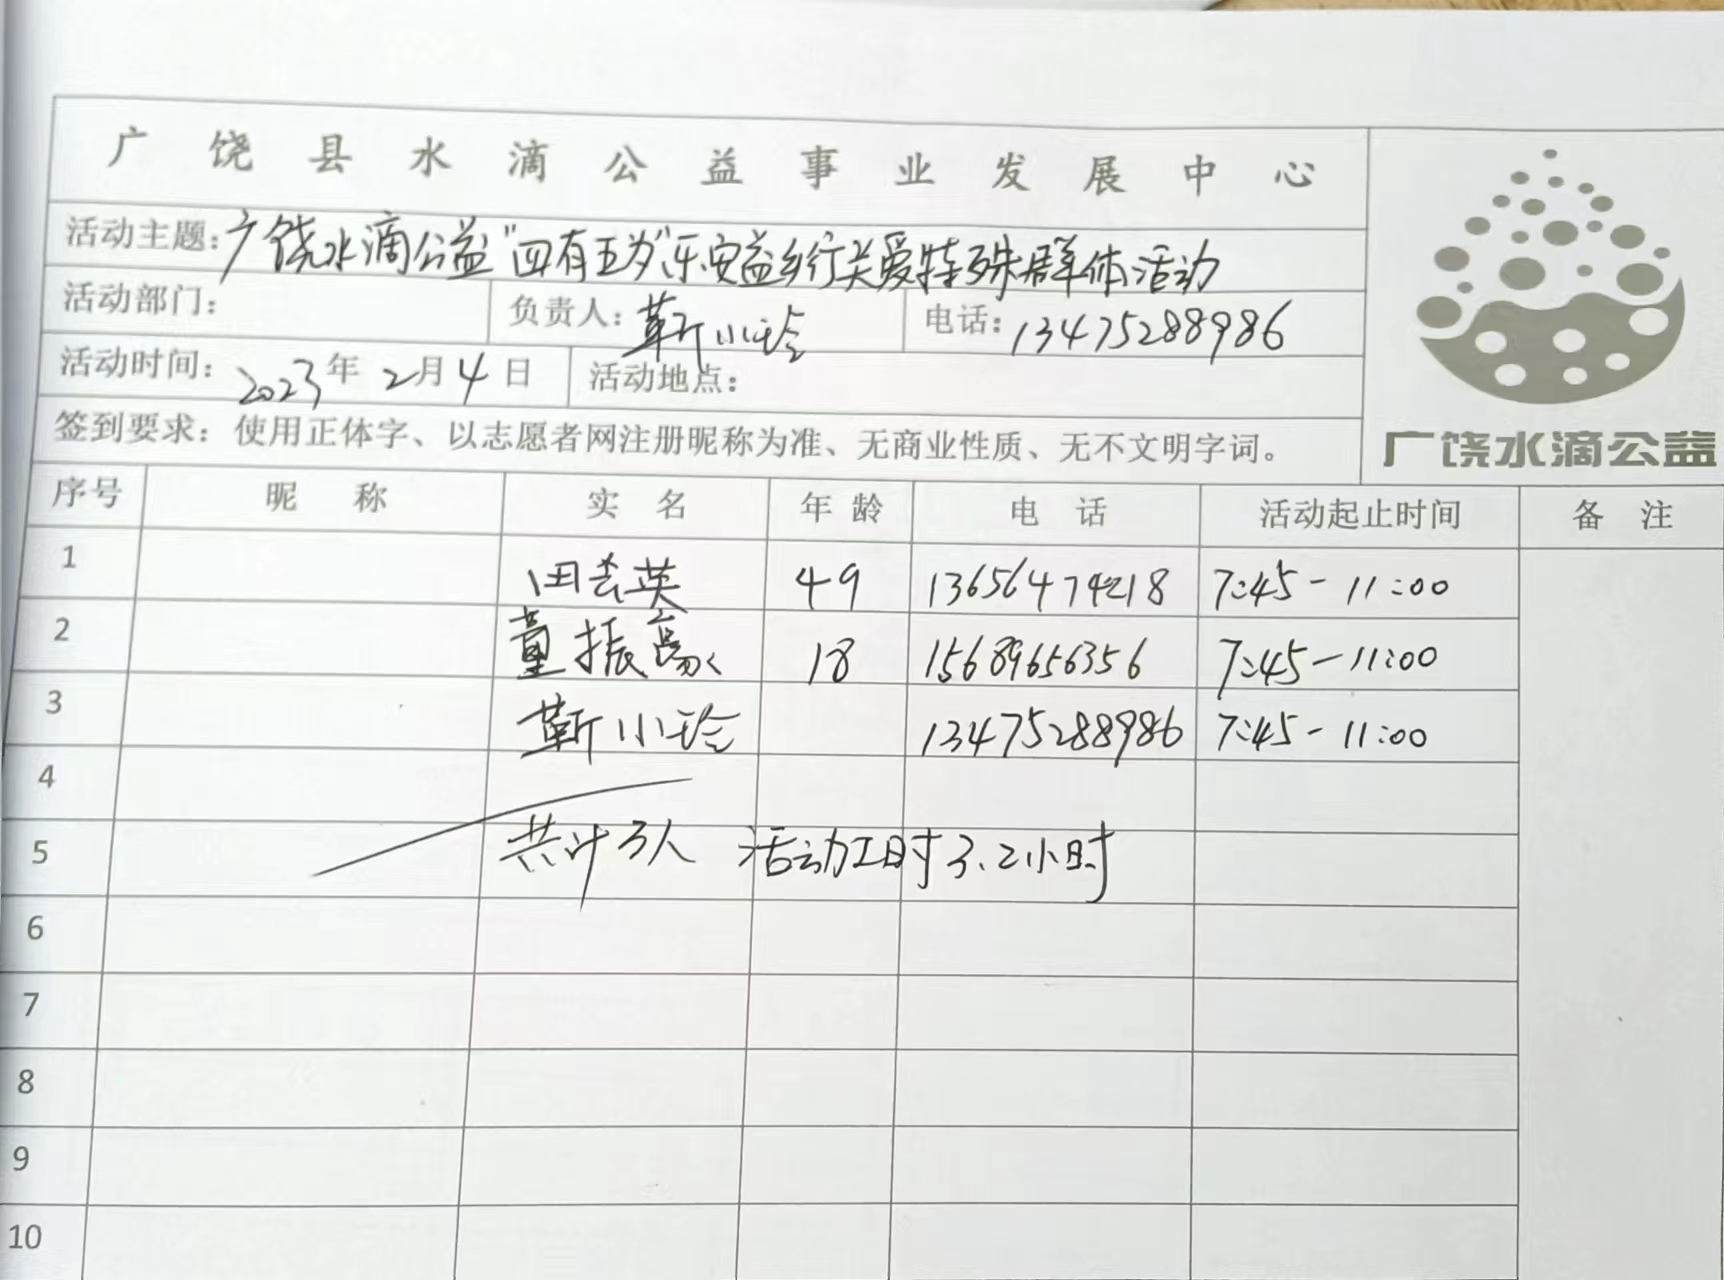 广饶县水滴公益事业发展中心
活动主题：广饶水滴公益"四有五为"乐安益乡行关爱特殊群体活动
活动部门： 负责人：靳小玲 电话：13475288986
活动时间：2023年2月4日 活动地点：
签到要求：使用正体字、以志愿者网注册昵称为准、无商业性质、无不文明字词。
广饶水滴公益
序号 昵称 实名 年龄 电话 活动起止时间 备注
1 田会英 49 13656474218 7:45-11:00
2 董振 18 15689656356 7:45-11:00
3 靳小玲 13475288986 7:45-11:00
4
5 共计3人 活动工时3.2小时
6
7
8
9
10